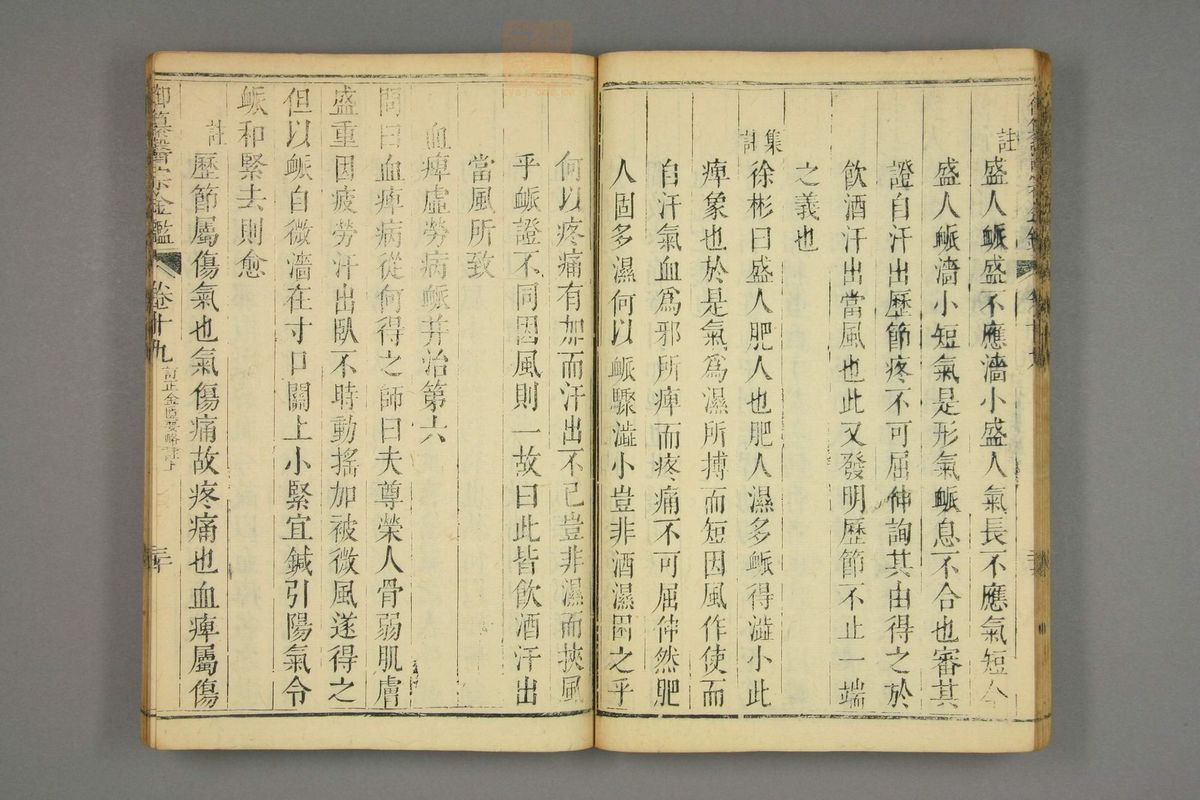 註
盛人脈盛不應濇小盛人氣長不應氣短今
盛人脈濇小短氣是形氣脈息不合也審其
證自汗出歷節疼不可屈伸詢其由得之於
飲酒汗出當風也此又發明歷節不止一端
之義也
集註
徐彬曰盛人肥人也肥人濕多脈得澁小此
痺象也於是氣爲濕所搏而短因風作使而
自汗氣血爲邪所痺而疼痛不可屈伸然肥
人固多濕何以脈驟澁小豈非酒濕固之乎
何以疼痛有加而汗出不已豈非濕而挾風
乎脈證不同因風則一故曰此皆飲酒汗出
當風所致
血痺虛勞病脈并治第六
問曰血痺病從何得之師曰夫尊榮人骨弱肌膚
盛重因疲勞汗出臥不時動搖加被微風遂得之
但以脈自微濇在寸口關上小緊宜鍼引陽氣令
脈和緊去則愈
註
歷節屬傷氣也氣傷痛故疼痛也血痺屬傷
御纂醫宗金鑑
卷十九
訂正金匱要略註下
三十